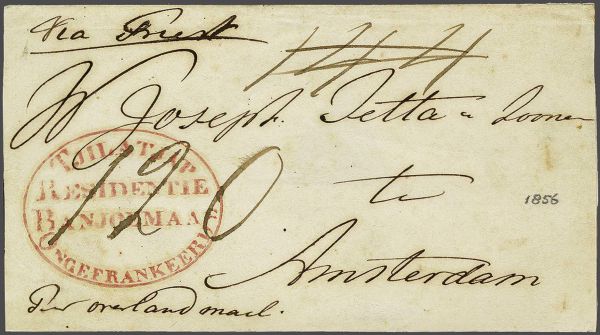 Via Triest
144
W Joseph Tetta & Zoonen
120
te
Amsterdam
Per overland mail.
TJILATJAP
RESIDENTIE
BANJOEMAAS
ONGEFRANKEERD
1856